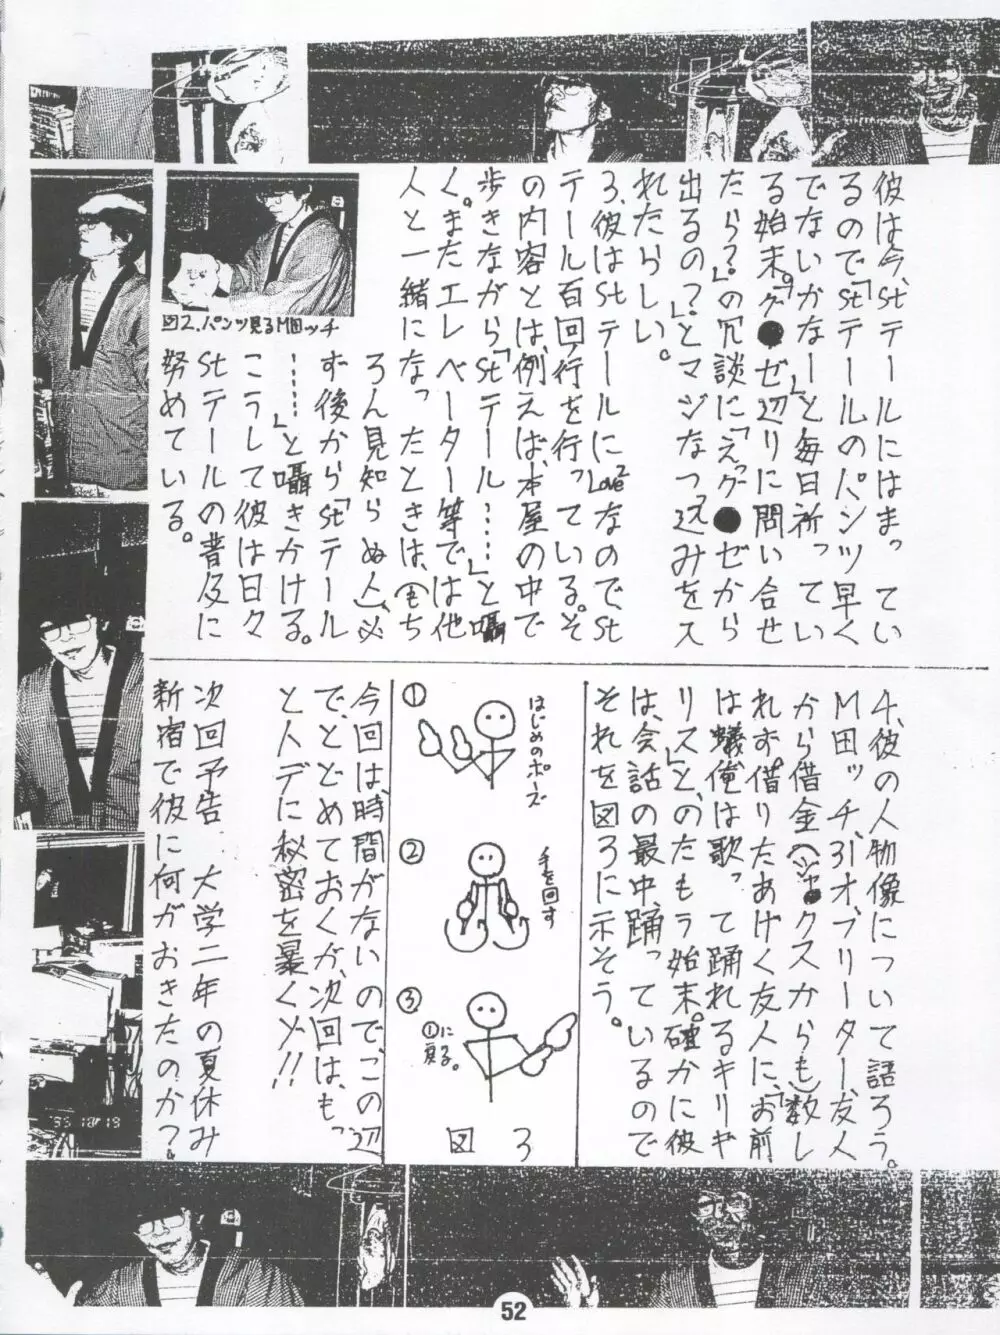 彼は今、stテールにはまってい
るので「stテールのパンツ早く
でないかなー」と毎日祈ってい
る始末。「グ●ゼ辺りに問い合せ
たら?」の冗談に「えっグ●ゼから
出るの?」とマジなつっ込みをス
れたらしい。
3、彼はstテールにLove2なのでst
テール百回行を行っている。そ
の内容とは、例えば、本屋の中で
歩きながら「stテール……」と囁
く。またエレベーター等では他
人と一緒になったときは、(もち
ろん見知らぬ人)必
ず後から「stテール
……」と囁きかける。
こうして彼は日々
stテールの普及に
努めている。
図2.パンツ見るM田ッチ
4、彼の人物像について語ろう。
M田ッチ、31才、フリーター、友人
から借金(ジャ●クスからも)数し
れず。借りたあげく友人に、「お前
は蟻、俺は歌って踊れるキリギ
リス」と、のたもう始末。確かに彼
は、会話の最中、踊っているので
それを図3に示そう。
①
はじめのポーズ
②
手を回す
③
①に
戻る。
図 3
今回は、時間がないので、この辺
で、とどめておくが、次回は、もっ
と人デに秘密を暴くゾ!!
次回予告 大学二年の夏休み
新宿で彼に何がおきたのか?
52